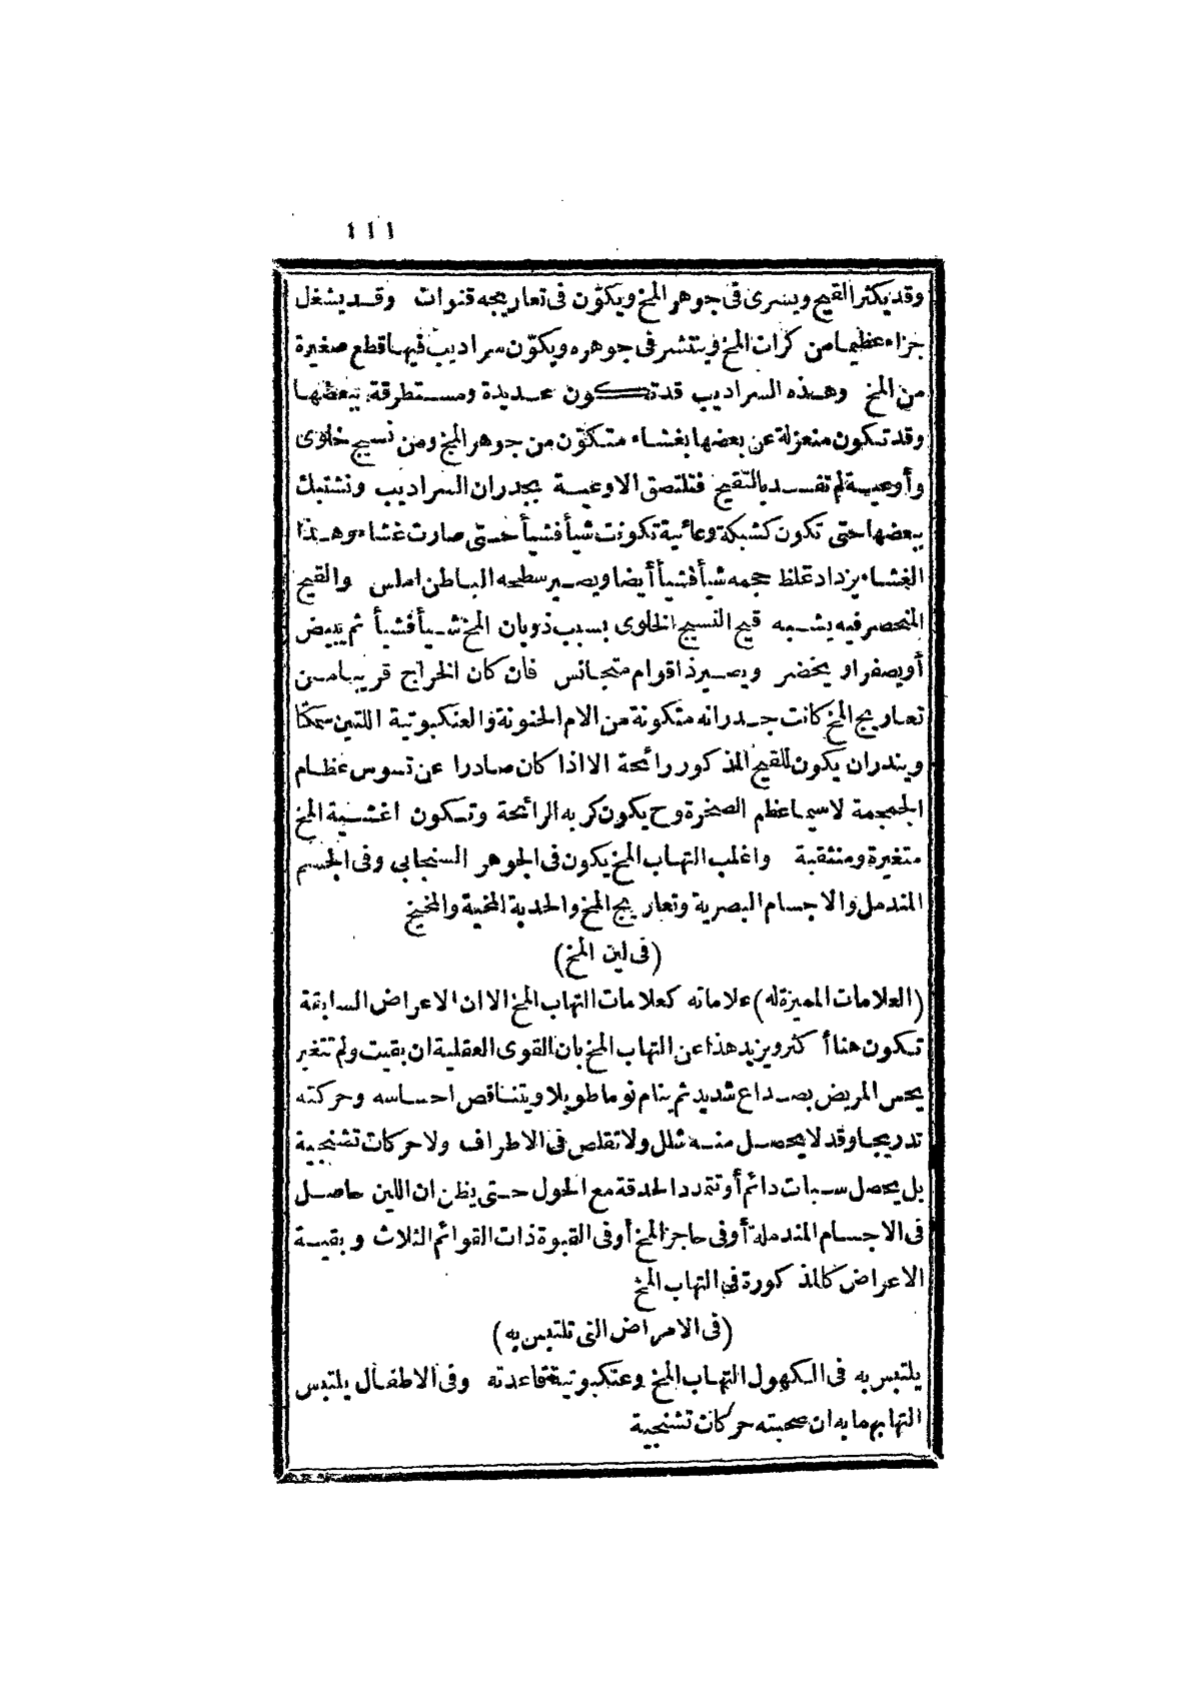 ١١١
وقد يكثر القيح ويسرى فى جوهر المخ ويكوّن فى تعاريجه قنوات وقد يشغل
جزاء عظيما من كرات المخ فينتشر فى جوهره ويكوّن سراديب فيها قطع صغيرة
من المخ وهذه السراديب قد تكون عديدة ومستطرقة ببعضها
وقد تكون منعزلة عن بعضها بغشاء متكوّن من جوهر المخ ومن نسيج خلوى
وأوعية لم تفسد بالتقيح فتلتصق الاوعية بجدران السراديب وتشتبك
ببعضها حتى تكون كشبكة وعائية تكونت شيأ فشيأ حتى صارت غشاء وهذا
الغشاء يزداد غلظ حجمه شيأ فشيأ أيضا ويصير سطحه الباطن املس والقيح
المنحصر فيه يشبه قيح النسيج الخلوى بسبب ذوبان المخ شيأ فشيأ ثم يبيض
أو يصفر او يخضر ويصير ذا قوام متجانس فان كان الخراج قريبا من
تعاريج المخ كانت جدرانه متكونة من الام الحنونة والعنكبوتية اللتين سمكتا
ويندر ان يكون للقيح المذكور رائحة الا اذا كان صادرا عن تسوس عظام
الجمجمة لاسيما عظم الصخرة وح يكون كريه الرائحة وتكون اغشية المخ
متغيرة ومنثقبة واغلب التهاب المخ يكون فى الجوهر السنجابى وفى الجسم
المندمل والاجسام البصرية وتعاريج المخ والحدبة المخية والمخيخ
(فى لين المخ)
(العلامات المميزة له) علاماته كعلامات التهاب المخ الا ان الاعراض السابقة
تكون هنا أكثر ويزيد هذا عن التهاب المخ بان القوى العقلية ان بقيت ولم تتغير
يحس المريض بصداع شديد ثم ينام نوما طويلا ويتناقص احساسه وحركته
تدريجا وقد لا يحصل منه شلل ولا تقلص فى الاطراف ولا حركات تشنجية
بل يحصل سبات دائم أو تتمدد الحدقة مع الحول حتى يظن ان اللين حاصل
فى الاجسام المندملة أو فى حاجز المخ أو فى القبوة ذات القوائم الثلاث وبقية
الاعراض كالمذكورة فى التهاب المخ
(فى الامراض التى تلتبس به)
يلتبس به فى الكهول التهاب المخ وعنكبوتية قاعدته وفى الاطفال يلتبس
التهابهما به ان صحبته حركات تشنجية